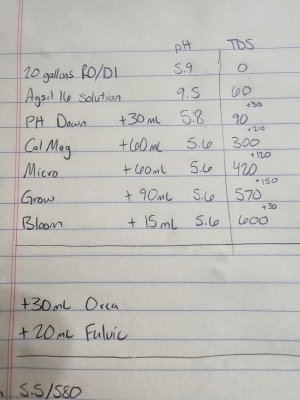 pH TDS
20 gallons RO/DI 5.9 0
Agsil 16 solution 9.5 60
+30
PH Down +30 mL 5.8 90
+210
Cal Mag +60 mL 5.6 300
+120
Micro +60 mL 5.6 420
+150
Grow + 90 mL 5.6 570
+30
Bloom + 15 mL 5.6 600
+30 mL Orca
+ 20 mL Fulvic
5.5/580